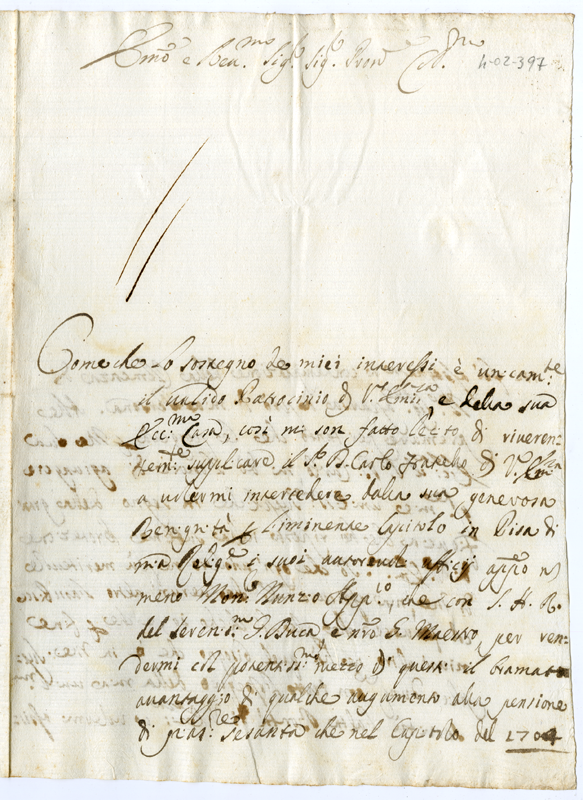 Em̃o e Rev.mo Sig.r Sig.r Pron̄ Col.mo
4-02-397
Come che lo sostegno de miei interessi è unicam.te
il valido Patrocinio di V.ra Em.za e della sua
Ecc.ma Casa, così mi son fatto lecito di riveren-
tem.te supplicare il S.r D. Carlo fratello di V.ra Em.za
a volermi intercedere dalla sua generosa
Benignità l'imminente Capitolo in Pisa di
mia Relig.e i suoi autorevoli officij app̃o
meno Mons. Nunzio App.lio che con S. A. R.
del Seren.mo G. Duca e nr̃o G. Maestro, per ren-
dermi col potentiss.mo mezzo di questi il bramato
avantaggio di qualche augumento alla pensione
di piastre sesanta che nel Capitolo del 1704